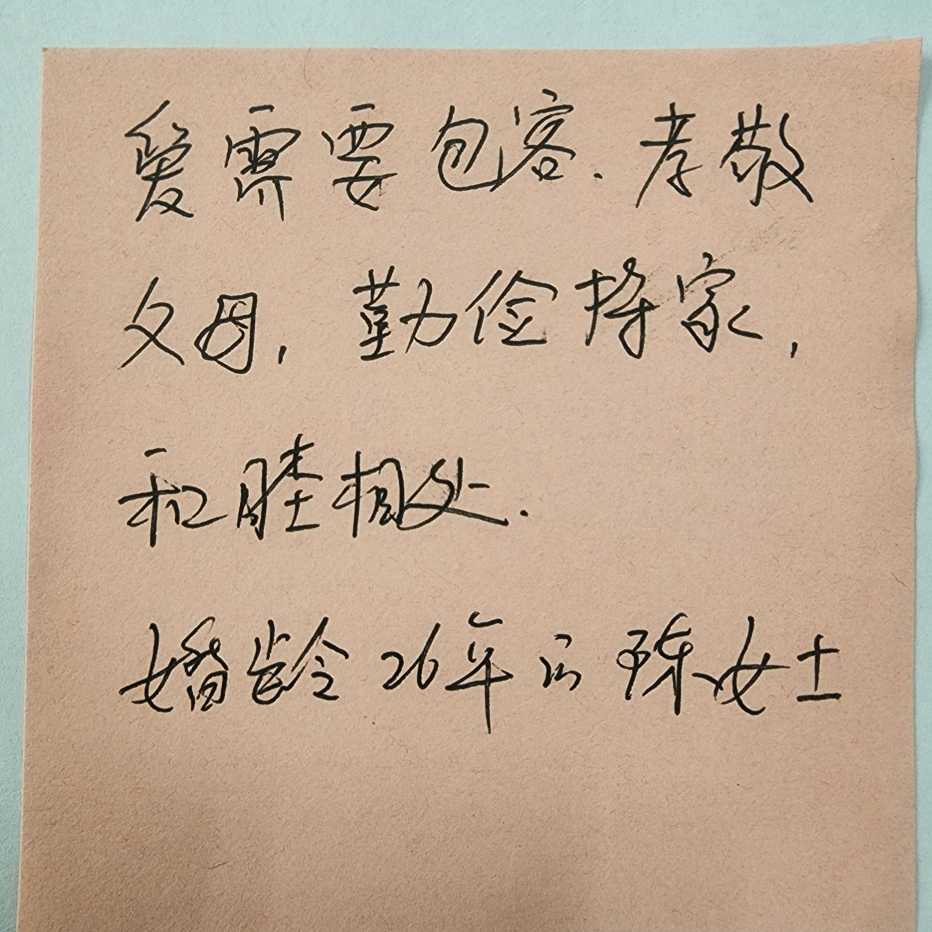 爱需要包容.孝敬
父母,勤俭持家,
和睦相处.
婚龄26年的陈女士